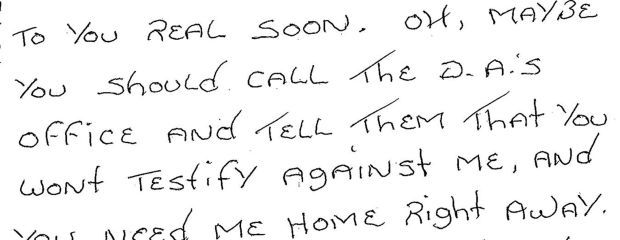 To You REAL SOON. OH, MAYBE
You should CALL The D.A.'s
office AND TELL ThEM That You
wont TEstify AgAINSt ME, AND
you NEEd ME HOME Right AWAY.